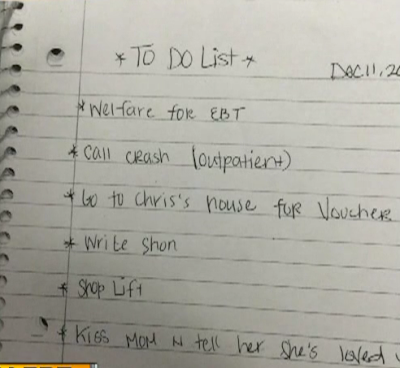 * TO DO List *
Dec. 11, 20
* Welfare for EBT
* Call crash (outpatient)
* Go to Chris's house for Voucher
* Write Shon
* Shop Lift
* Kiss MOM N tell her she's loved